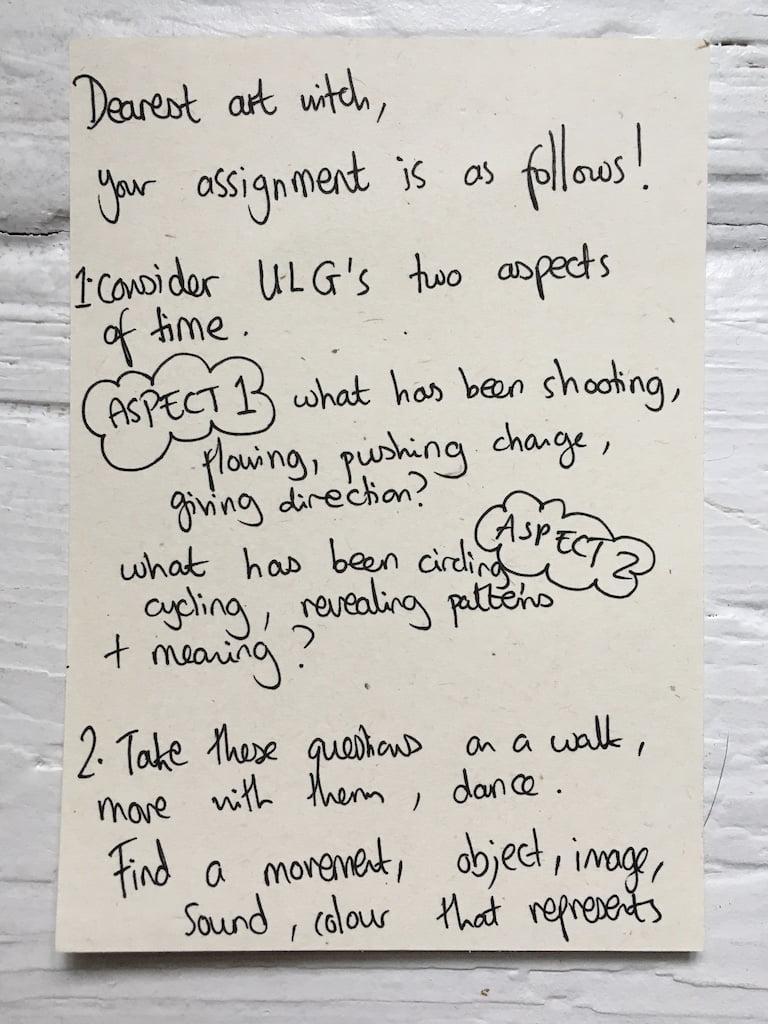 Dearest art witch,
your assignment is as follows!
1. Consider ULG's two aspects
of time.
ASPECT 1 what has been shooting,
flowing, pushing change,
giving direction?
ASPECT 2
what has been circling
cycling, revealing patterns
+ meaning?
2. Take these questions on a walk,
move with them, dance.
Find a movement, object, image,
sound, colour that represents